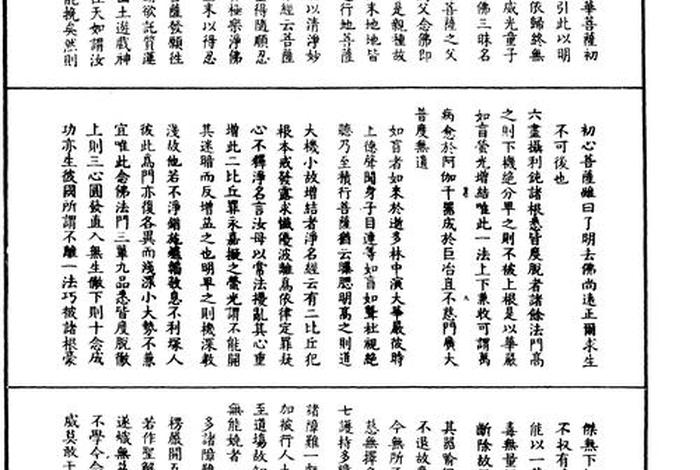 華菩薩初
引此以明
依歸終無
威光童子
佛三昧名
菩薩之父
父念佛即
是親種故
末地地皆
行地菩薩
以清淨妙
經云菩薩
得隨順忍
極樂淨佛
末以得忍
薩發願往
欲託質蓮
土遊戲神
在天如謂汝
能挽矣然則
初心菩薩雖曰了明去佛尚遠正爾求生
不可後也
六盡攝利鈍諸根悉皆度脫者諸餘法門高
之則下機絕分卑之則不被上根是以華嚴
如盲螢光增結唯此一法上下兼收可謂萬
病愈於阿伽千器成於巨冶豈不慈門廣大
普度無遺
如盲者如來於逝多林中演大華嚴彼時
上德聲聞身子目連等如盲如聾杜視絕
聽乃至積行菩薩猶云曝腮明高之則道
大機小故增結者淨名經云有二比丘犯
根本戒發露求懺優波離爲依律定罪疑
心不釋淨名言汝毋以常法擾亂其心重
增此二比丘罪永嘉擬之螢光謂不能開
其迷暗而反增益之也明卑之則機深教
淺故他若不淨錯施鑪鞴數息不利塚人
彼此爲門亦復各異而淺深小大勢不兼
宜唯此念佛法門三輩九品悉皆度脫徹
上則三心圓發直入無生徹下則十念成
功亦生彼國所謂不離一法巧被諸根豪
傑無下
不杈有
能以一
毒無量
斷除故
其器喻
不退故
今無所
慈無擇
七護持多
諸障難一
加被行人
至道場故
無能嬈者
多諸障難
楞嚴開五
若作聖解
遂
不學今念
威莫敢干